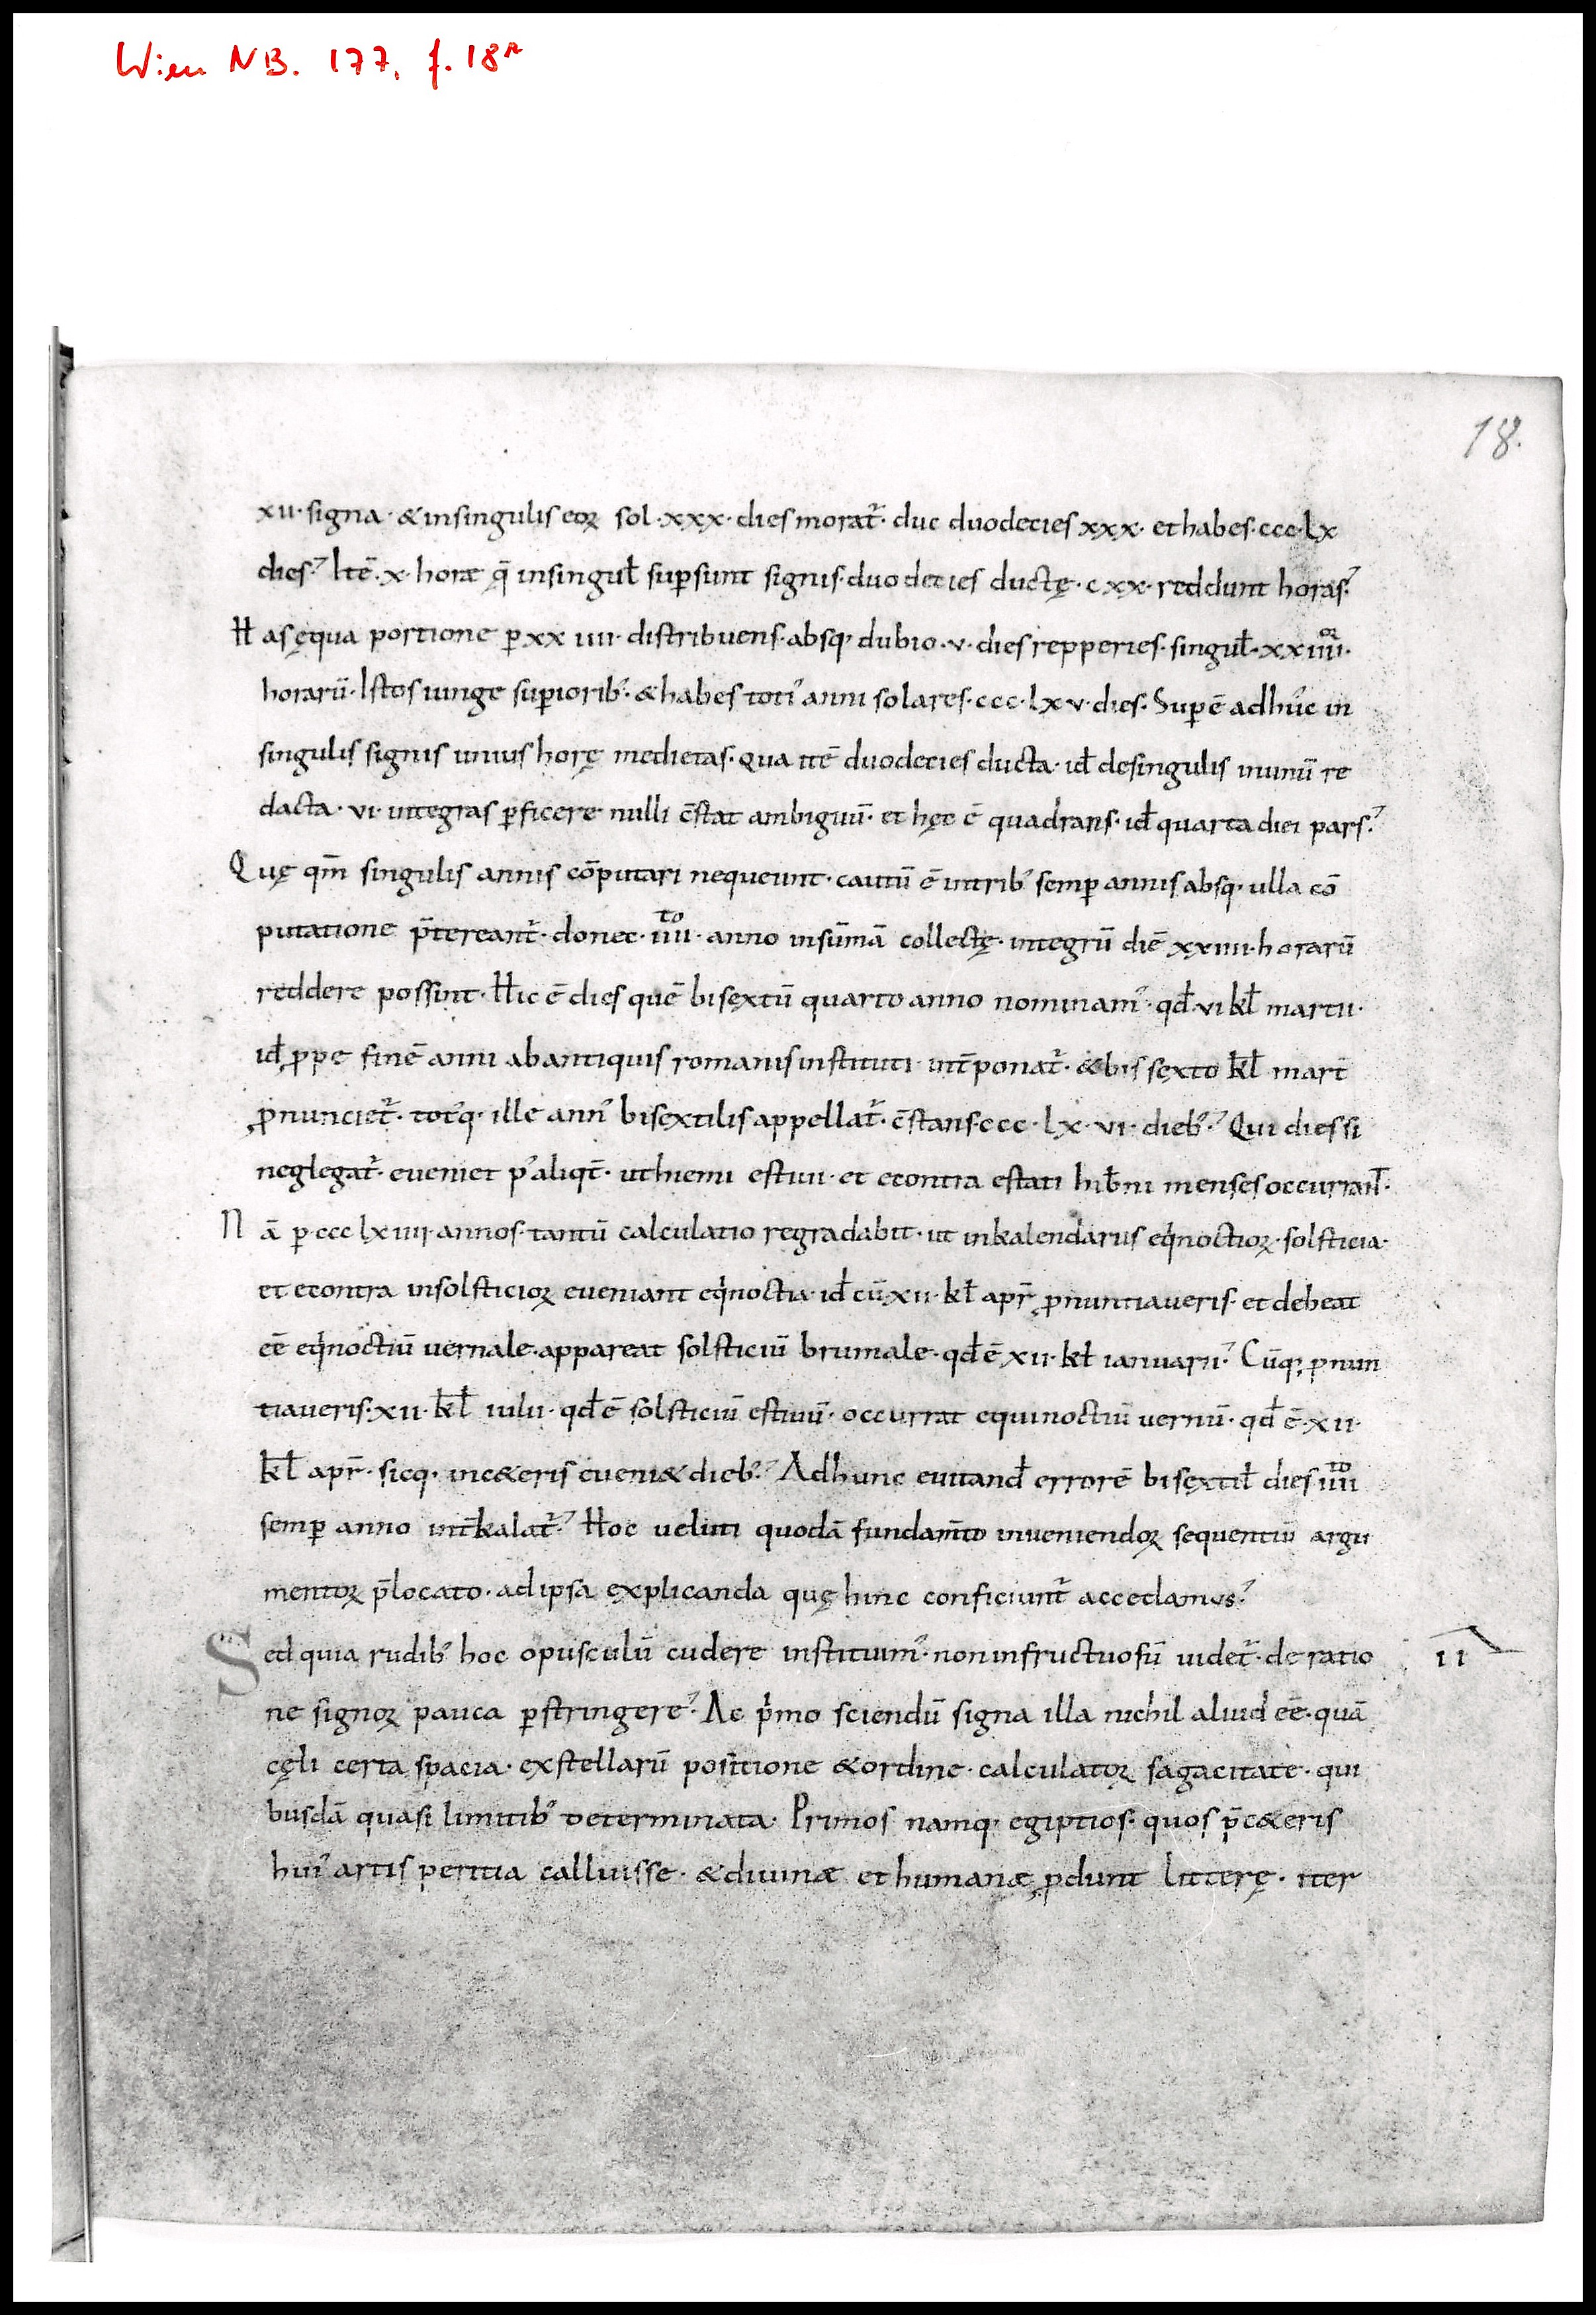 Wien NB. 177, f. 18r
18.
xii· signa· & insingulis eoꝝ sol·xxx· dies morat̄· duc duodecies xxx· et habes·ccc·lx
dies? Itē·x·horę q̄ insingul̄ sup̱sunt signis·duodecies ductę·cxx·reddunt horas?
Has ęqua portione ꝑ xxiiii· distribuens·absq· dubio·v·dies repperies·singul̄·xxiiiioꝝ·
horarū·Istos iunge sup̱iorib᾿·& habes toti᾿ anni solares·ccc·lxv·dies·Sup̱ē adhuc in
singulis signis unius horę medietas·qua itē duodecies ducta·id̄ desingulis inunū re
dacta·vi·integras ꝑficere nulli c̄stat ambiguū·et hęc ē quadrans·id̄ quarta diei pars?
Quę qm̄ singulis annis cōputari nequeunt·cautū ē intrib᾿ semꝑ annis absq· ulla cō
putatione p̄tereant̄·donec·iiiito·anno insūmā collectę·integrū diē xxiiii·horarū
reddere possint·Hic ē dies quē bisextū quarto anno nominam᾿·qd̄·vi kl̄ martii·
id̄ ꝓpe finē anni abantiquis romanis instituti int̄ponat̄·&bis sexto kl̄ mar̄t
ꝓnunciet̄·tot᾿q· ille ann᾿ bisextilis appellat̄·c̄stans·ccc·lx·vi·dieb᾿? Qui dies si
neglegat̄·eveniet p᾿ aliqt̄·uthiemi estivi·et econtra estati hib̄ni menses occurrant̄·
Nā ꝑ·ccclxiiii·annos·tantū calculatio regradabit·ut inkalendariis eq̇noctioꝝ·solsticia·
et econtra insolsticioꝝ eveniant eq̇noctia·id̄ cū·xii·kl̄ apr̄ ꝓnuntiaveris·et debeat
eē eq̇noctiū vernale·appareat solsticiū brumale·qd̄ ē xii·kl̄ ianuarii? Cūq· ꝓnun
tiaveris·xii·kl̄ iulii·qd̄ ē solsticiū estivū·occurrat equinoctiū vernū·qd̄ ē·xii·
kl̄ apr̄·sicq·inc&eris eveni& dieb᾿? Adhunc evitand̄ errorē bisextil̄ dies iiiito
semꝑ anno int̄kalat̄? Hoc veluti quodā fundam̄to inveniendoꝝ sequentiū argu
mentoꝝ p̄locato·adipsa explicanda quę hinc conficiunt̄ accedamus?
Sed quia rudib᾿ hoc opusculū cudere instituim᾿·noninfructuosū videt̄·de ratio
II
ne signoꝝ pauca ꝑstringere? Ac p̍mo sciendū signa illa nichil aliud eē·quā
cęli certa spacia·exstellarū positione &ordine·calculatoꝝ sagacitate·qui
busdā quasi limitib᾿ determinata·Primos namq· egiptios·quos p̄c&eris
hui᾿ artis peritia calluisse·&divinæ et humanæ ꝓdunt litterę·iter